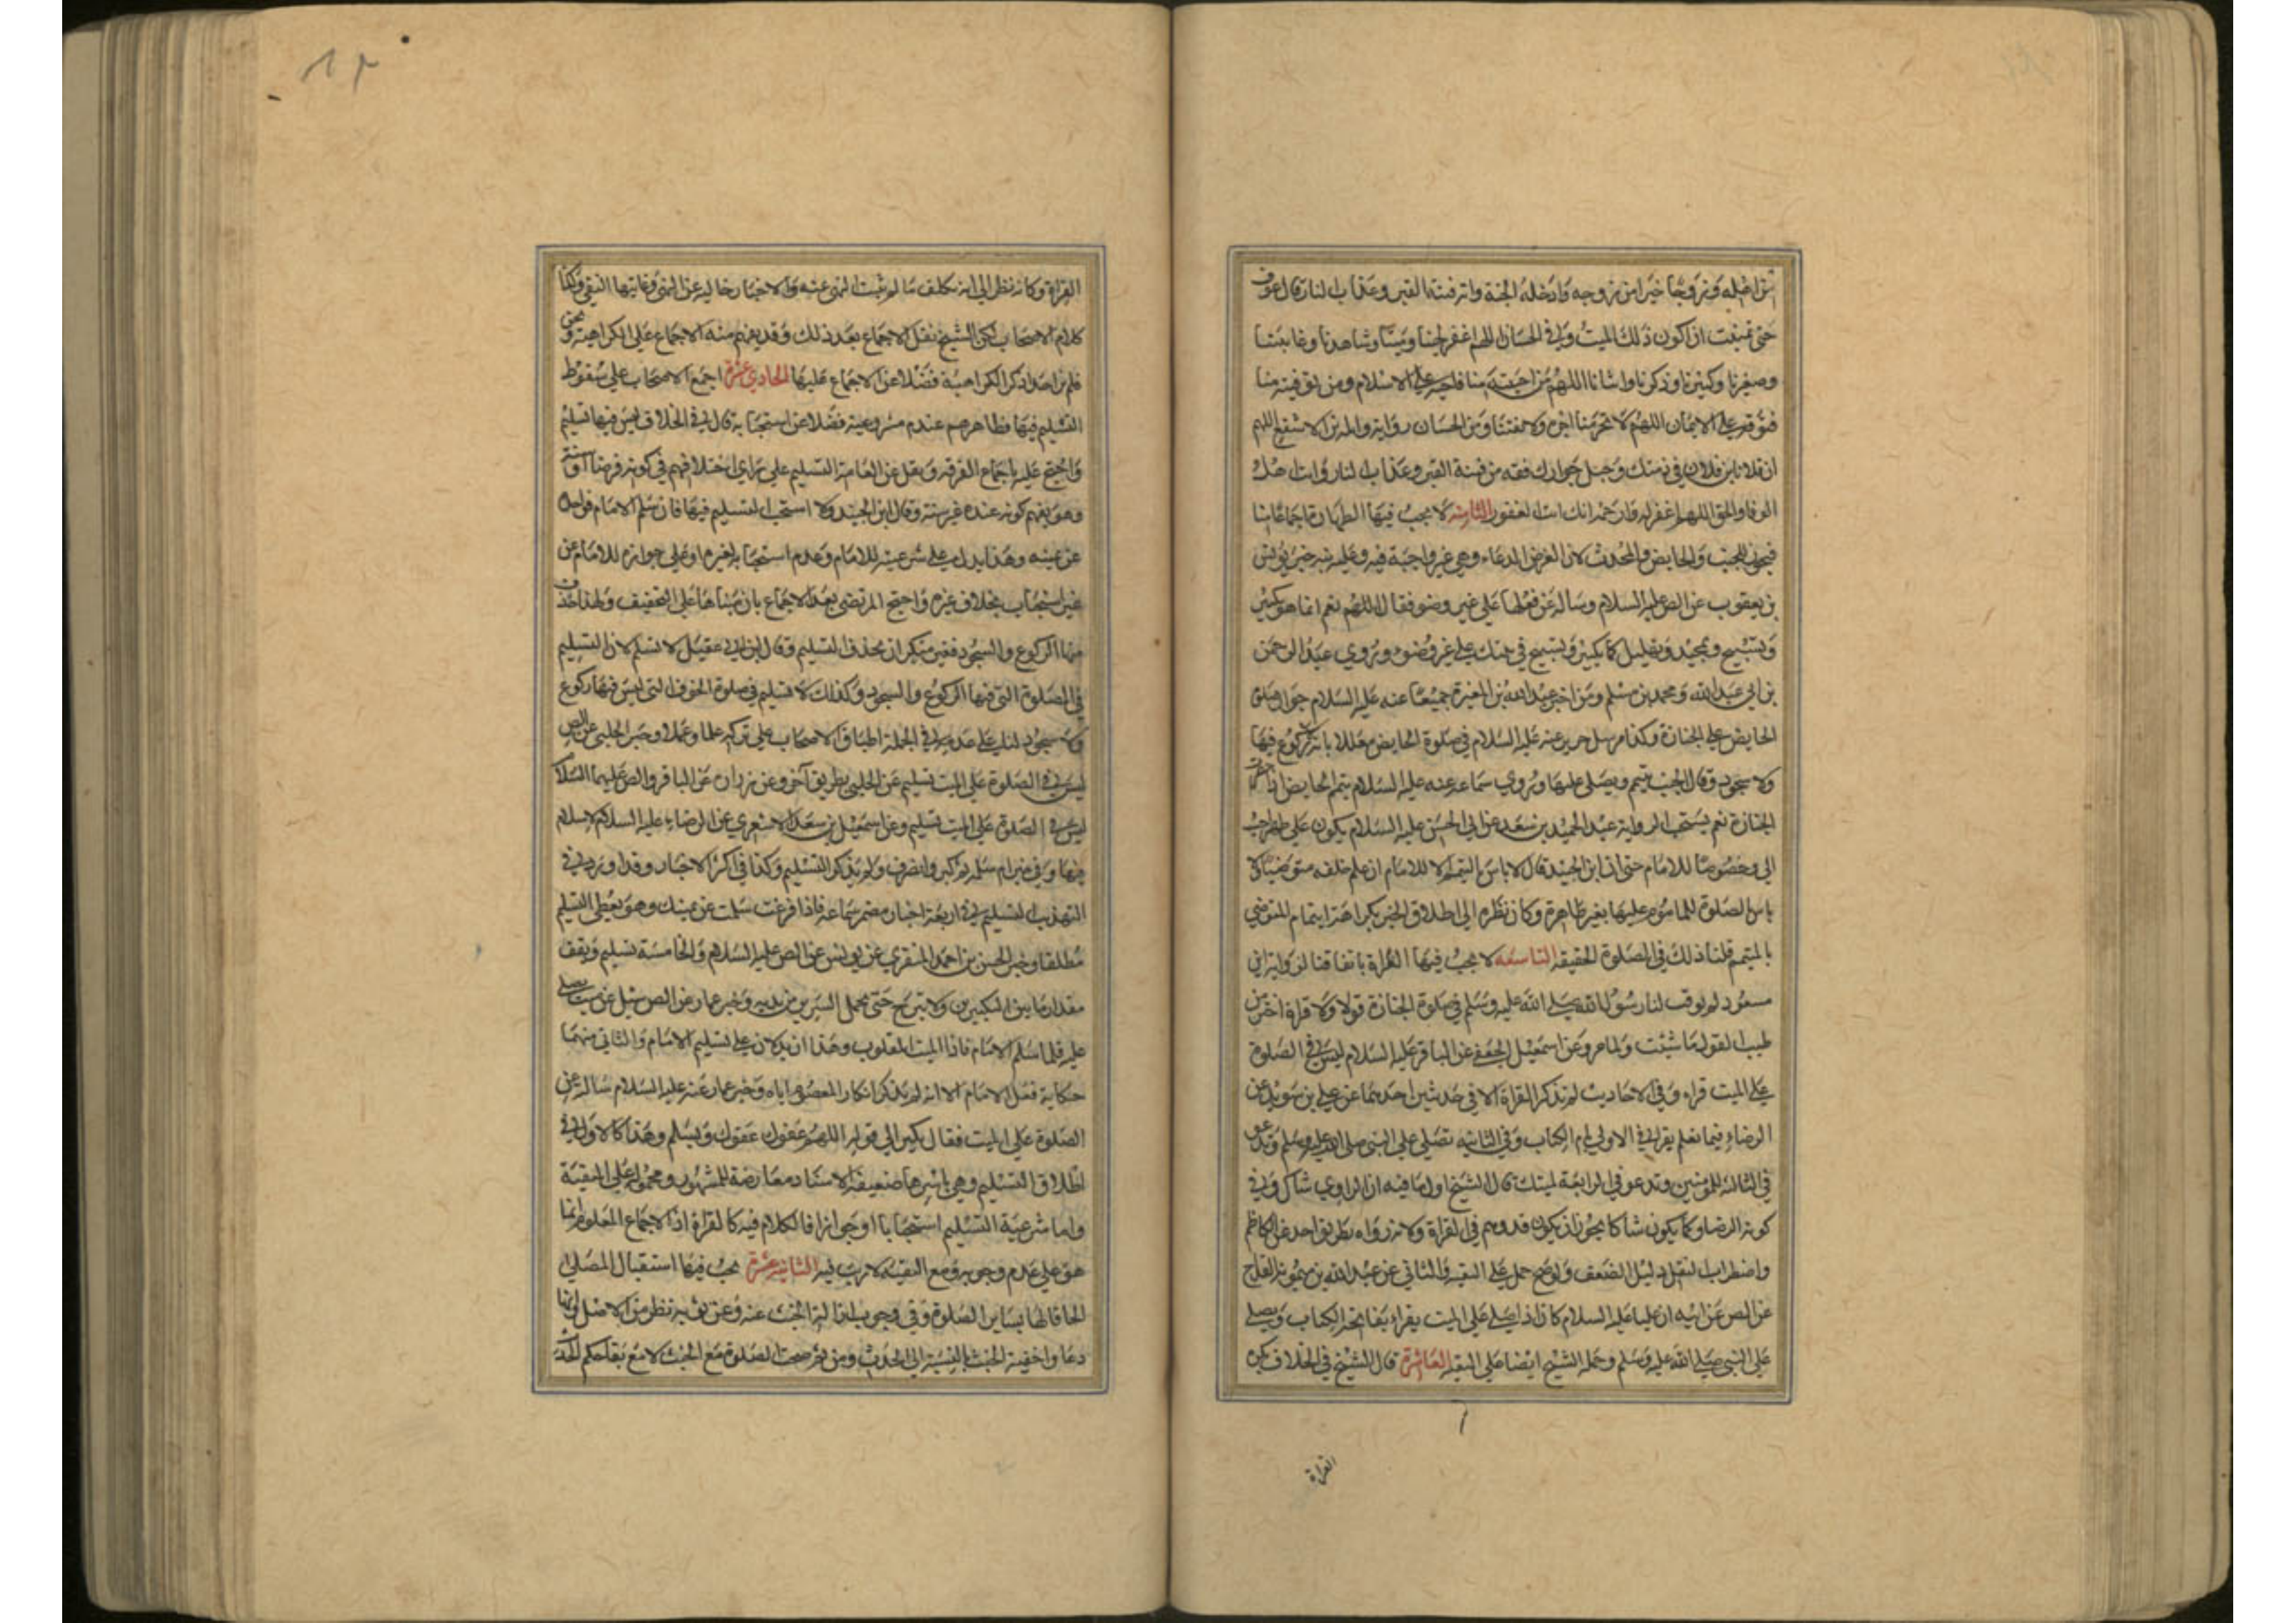 من اهله وزوجا خيرا من زوجه وادخله الجنة واثر فتنة القبر وعذاب النار قال عوف
حتى تمنيت ان اكون ذلك الميت وفي الحسان اللهم اغفر لحينا وميتنا وشاهدنا وغائبنا
وصغيرنا وكبيرنا وذكرنا وانثانا اللهم من احييته منا فاحيه على الاسلام ومن توفيته منا
فتوفه على الايمان اللهم لا تحرمنا اجره ولا تفتنا ومن الحسان رواية واثلة بن الاسقع اللهم
ان فلان ابن فلان في ذمتك وحبل جوارك فقه من فتنة القبر وعذاب النار وانت اهل
الوفا والحق اللهم اغفر له وارحمه انك انت الغفور الثامنه لا يجب فيها الطهارة اجماعا منا
فيجوز للجنب والحايض والمحدث لان الغرض الدعاء وهي غير واجبة فيه وعليه نبه خبر يونس
بن يعقوب عن الص عليه السلام وساله عن فعلها على غير وضو فقال نعم انما هو تكبير
وتسبيح وتحميد وتهليل كما تكبر وتسبح في بيتك على غير وضوء وروي عبد الرحمن
بن ابي عبد الله ومحمد بن مسلم ومن اخبر عبد الله بن المغيرة جميعا عنه عليه السلام جواز صلوة
الحايض على الجنازة وكذا مرسل حريز عنه عليه السلام في صلوة الحايض معللا بانه لا ركوع فيها
ولا سجود وقال الجنب يتيمم ويصلي عليها وروي سماعه عنه عليه السلام تيمم الحايض اذا حضرت
الجنازة نعم يستحب لرواية عبد الحميد بن سعد عن ابي الحسن عليه السلام يكون على طهر احب
الي وخصوصا للامام حتى ان ابن الجنيد قال لا باس بالتيمم الا للامام ان علم خلفه متوضيا ولا
باس بالصلوة للماموم عليها بغير طاهرة وكان نظره الى اطلاق الخبر بكراهة ايتمام المتوضي
بالمتيمم قلنا ذلك في الصلوة الحقيقه التاسعه لا يجب فيها القراة باتفاقنا لرواية ابن
مسعود لم يوقت لنا رسول الله صلى الله عليه وسلم في صلوة الجنازة قولا ولا قراة اختر من
طيب القول ما شئت ولما مر وعن اسمعيل الجعفي عن الباقر عليه السلام ليس في الصلوة
على الميت قراه وفي الاحاديث لم تذكر القراة الا في حديثين احدهما عن علي بن سويد عن
الرضاء فيما نعلم يقرا في الاولى بام الكتاب وفي الثانيه تصلي على النبي صلى الله عليه وسلم وتدعو
في الثالثه للمومنين وتدعو في الرابعة لميتك قال الشيخ اول ما فيه ان الراوي شاك في
كونه الرضا وكما يكون شاكا يجوز ان يكون قد وهم في القراة ولانه رواه بطريق احد عن الكاظم
واضطراب النقل دليل الضعف ولو صح حمل على التقيه والثاني عن عبد الله بن ميمون القداح
عن الص عن ابيه ان عليا عليه السلام كان اذا صلى على الميت يقراء بفاتحة الكتاب ويصلي
على النبي صلى الله عليه وسلم وحمله الشيخ ايضا على التقيه العاشرة قال الشيخ في الخلاف يكره
القراة
١٢
القراة وكانه نظر الى انه تكلف ما لم يثبت النهي عنه والاخبار خالية عن النهي وغايتها النفي وكذا
كلام الاصحاب لكن الشيخ نقل الاجماع بعد ذلك وقد يفهم منه الاجماع على الكراهية ونحن
فلم نر احدا ذكر الكراهية فضلا عن الاجماع عليها الحادي عشرة اجمع الاصحاب على سقوط
التسليم فيها فظاهرهم عدم مشروعيته فضلا عن استحبابه قال في الخلاف ليس فيها تسليم
واحتج عليه باجماع الفرقه ونقل عن العامة التسليم على اختلافهم في كونه فرضا او سنة
وهو يفهم كونه عنده غير سنة وقال ابن الجنيد ولا استحب التسليم فيها فان سلم الامام فواحدة
عن يمينه وهذا يدل على شرعيته للامام وعدم استحبابه لغيره او على جوازه للامام من
غير استحباب بخلاف غيره واحتج المرتضى بعد الاجماع بان مبناها على التخفيف ولهذا حذف
منها الركوع والسجود فغير منكر ان يحذف التسليم وقال ابن ابي عقيل لا تسلم لان التسليم
في الصلوة التي فيها الركوع والسجود وكذلك لا تسليم في صلوة الخوف التي ليس فيها ركوع
ولا سجود لنا على عدمه في الجملة اطباق الاصحاب على تركه علما وعملا وخبر الحلبي عن الص
ليس في الصلوة على الميت تسليم عن الحلبي بطريق آخر وعن زرارة عن الباقر والص عليهما السلام
ليس في الصلوة على الميت تسليم وعن اسمعيل بن سعد الاشعري عن الرضاء عليه السلام لا سلام
فيها وفي خبر ام سلمه ثم كبر وانصرف ولم يذكر التسليم وكذا في اكثر الاخبار وقد اورد في
التهذيب التسليم في اربعة اخبار مضمر سماعه فاذا فرغت سلمت عن يمينك وهو يعطي التسليم
مطلقا وخبر الحسن بن احمد المنقري عن يونس عن الص عليه السلام والخامسة تسليم ويقف
مقدار ما بين التكبيرين ولا يبرح حتى يحمل السرير من بين يديه وخبر عمار عن الص سئل عن ميت صلي
عليه فلما سلم الامام فاذا الميت مقلوب وهذان يدلان على تسليم الامام والثاني منهما
حكاية فعل الامام الا انه لم يذكر انكار المعصوم اياه وخبر عمار عنه عليه السلام سالته عن
الصلوة على الميت فقال تكبر الى قوله اللهم عفوك عفوك وتسلم وهذا كالاول في
اطلاق التسليم وهي باسرها ضعيفة الاسناد معارضة للمشهور ومحمولة على التقية
واما شرعية التسليم استحبابا او جوازا فالكلام فيه كالقراة اذ الاجماع المعلوم انما
هو على عدم وجوبه ومع التقيه لا ريب فيه الثانيه عشرة يجب فيها استقبال المصلي
الحاقا لها بساير الصلوة وفي وجوب ازالة الخبث عنه وعن ثوبه نظر من الاصل وانها
دعا واخفية الخبث بالنسبة الى الحدث ومن ثم صحت الصلوة مع الخبث لا مع بقا حكم الحدث